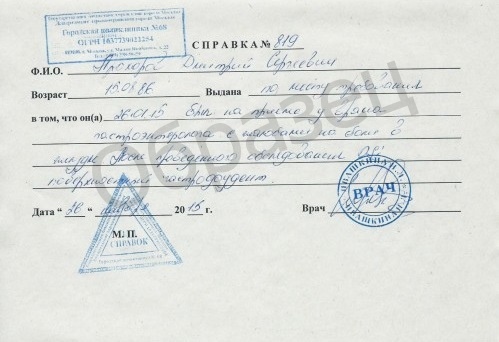 Городская поликлиника №68
ОГРН 1037739921254
СПРАВКА № 819
Ф.И.О. Прохоров Дмитрий Сергеевич
Возраст 15.08.86 Выдана по месту требования
в том, что он(а) 26.01.15 был на приеме у врача
гастроэнтеролога с жалобами на боли в
желудке. После проведенного обследования DS:
поверхностный гастродуоденит.
Дата "26" января 2015 г. Врач
М. П.
ДЛЯ СПРАВОК
ИВАШКИНА Н.Д.
ВРАЧ
Образец